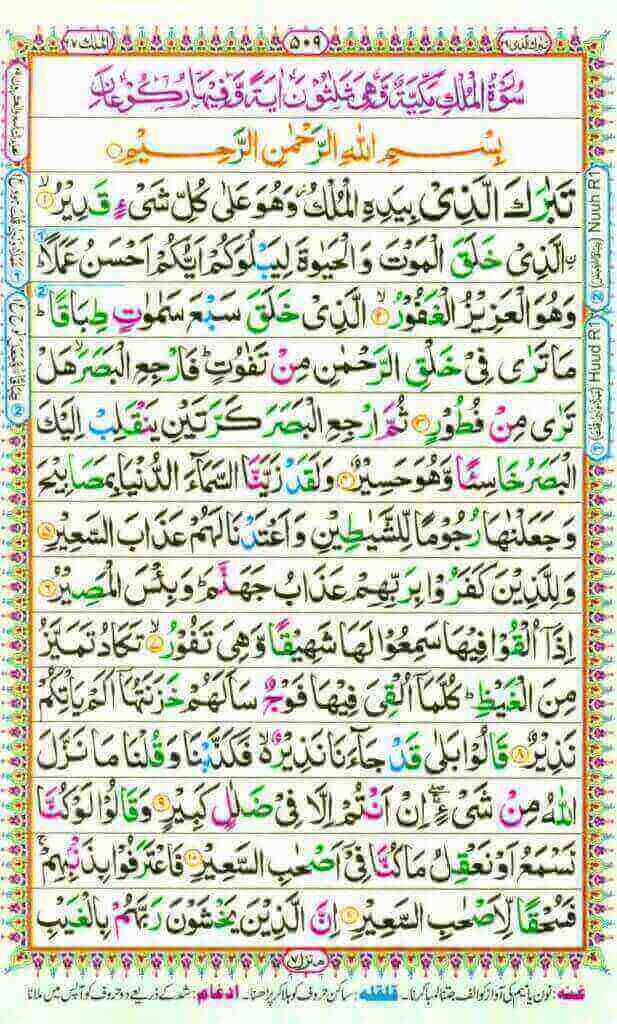 تبٰرك الذی ٢٩
٥٠٩
الملك ٦٧
سُوْرَةُ الْمُلْكِ مَكِّیَّةٌ وَّهِیَ ثَلٰثُوْنَ اٰیَةً وَّفِیْهَا رُكُوْعَانِ
بِسْمِ اللّٰهِ الرَّحْمٰنِ الرَّحِیْمِ
تَبٰرَكَ الَّذِیْ بِیَدِهِ الْمُلْكُ ؗ وَهُوَ عَلٰی كُلِّ شَیْءٍ قَدِیْرُ ۙ﴿۱﴾
ۣالَّذِیْ خَلَقَ الْمَوْتَ وَ الْحَیٰوةَ لِیَبْلُوَكُمْ اَیُّكُمْ اَحْسَنُ عَمَلًا ؕ
وَهُوَ الْعَزِیْزُ الْغَفُوْرُ ۙ﴿۲﴾ الَّذِیْ خَلَقَ سَبْعَ سَمٰوٰتٍ طِبَاقًا ؕ
مَا تَرٰی فِیْ خَلْقِ الرَّحْمٰنِ مِنْ تَفٰوُتٍ ؕ فَارْجِعِ الْبَصَرَ ۙ هَلْ
تَرٰی مِنْ فُطُوْرٍ ﴿۳﴾ ثُمَّ ارْجِعِ الْبَصَرَ كَرَّتَیْنِ یَنْقَلِبْ اِلَیْكَ
الْبَصَرُ خَاسِئًا وَّهُوَ حَسِیْرٌ ﴿۴﴾ وَلَقَدْ زَیَّنَّا السَّمَآءَ الدُّنْیَا بِمَصَابِیْحَ
وَجَعَلْنٰهَا رُجُوْمًا لِّلشَّیٰطِیْنِ وَ اَعْتَدْنَا لَهُمْ عَذَابَ السَّعِیْرِ ﴿۵﴾
وَلِلَّذِیْنَ كَفَرُوْا بِرَبِّهِمْ عَذَابُ جَهَنَّمَ ؕ وَبِئْسَ الْمَصِیْرُ ﴿۶﴾
اِذَاۤ اُلْقُوْا فِیْهَا سَمِعُوْا لَهَا شَهِیْقًا وَّهِیَ تَفُوْرُ ۙ﴿۷﴾ تَكَادُ تَمَیَّزُ
مِنَ الْغَیْظِ ؕ كُلَّمَاۤ اُلْقِیَ فِیْهَا فَوْجٌ سَاَلَهُمْ خَزَنَتُهَاۤ اَلَمْ یَاْتِكُمْ
نَذِیْرٌ ﴿۸﴾ قَالُوْا بَلٰی قَدْ جَآءَنَا نَذِیْرٌ ۬ۙ فَكَذَّبْنَا وَقُلْنَا مَا نَزَّلَ
اللّٰهُ مِنْ شَیْءٍ ۚۖ اِنْ اَنْتُمْ اِلَّا فِیْ ضَلٰلٍ كَبِیْرٍ ﴿۹﴾ وَقَالُوْا لَوْ كُنَّا
نَسْمَعُ اَوْ نَعْقِلُ مَا كُنَّا فِیْۤ اَصْحٰبِ السَّعِیْرِ ﴿۱۰﴾ فَاعْتَرَفُوْا بِذَنْۢبِهِمْ ۚ
فَسُحْقًا لِّاَصْحٰبِ السَّعِیْرِ ﴿۱۱﴾ اِنَّ الَّذِیْنَ یَخْشَوْنَ رَبَّهُمْ بِالْغَیْبِ
Nuuh R1
Huud R1
منزل ٧
غنه: نون یا میم کی آواز کو الف جتنا لمبا کرنا۔ قلقله: ساکن حروف کو ہلا کر پڑھنا۔ ادغام: شد کے ذریعے دو حروف کو آپس میں ملانا